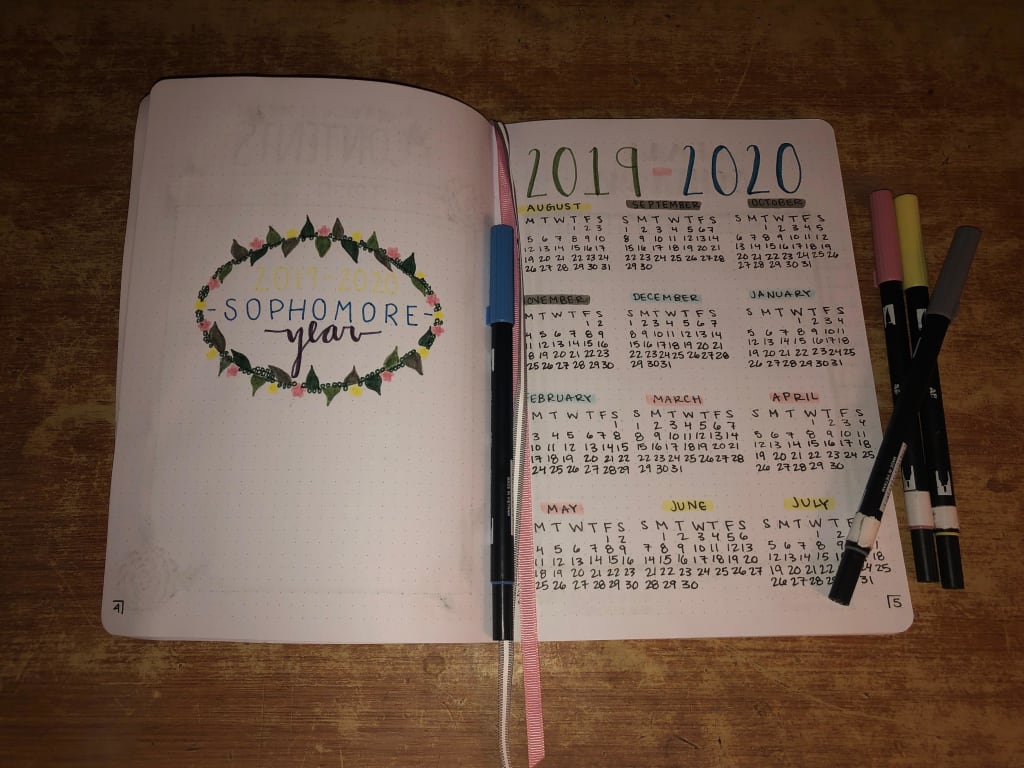 2019-2020
-SOPHOMORE-
year
4
2019-2020
AUGUST
M T W T F S
1 2 3
5 6 7 8 9 10
12 13 14 15 16 17
19 20 21 22 23 24
26 27 28 29 30 31
SEPTEMBER
S M T W T F S
1 2 3 4 5 6 7
8 9 10 11 12 13 14
15 16 17 18 19 20 21
22 23 24 25 26 27 28
29 30
OCTOBER
S M T W T F S
1 2 3 4 5
6 7 8 9 10 11 12
13 14 15 16 17 18 19
20 21 22 23 24 25 26
27 28 29 30 31
OVEMBER
M T W T F S
1 2
4 5 6 7 8 9
11 12 13 14 15 16
18 19 20 21 22 23
25 26 27 28 29 30
DECEMBER
S M T W T F S
1 2 3 4 5 6 7
8 9 10 11 12 13 14
15 16 17 18 19 20 21
22 23 24 25 26 27 28
29 30 31
JANUARY
S M T W T F S
1 2 3 4
5 6 7 8 9 10 11
12 13 14 15 16 17 18
19 20 21 22 23 24 25
26 27 28 29 30 31
EBRUARY
M T W T F S
1
3 4 5 6 7 8
10 11 12 13 14 15
17 18 19 20 21 22
24 25 26 27 28 29
MARCH
S M T W T F S
1 2 3 4 5 6 7
8 9 10 11 12 13 14
15 16 17 18 19 20 21
22 23 24 25 26 27 28
29 30 31
APRIL
S M T W T F S
1 2 3 4
5 6 7 8 9 10 11
12 13 14 15 16 17 18
19 20 21 22 23 24 25
26 27 28 29 30
MAY
M T W T F S
1 2
4 5 6 7 8 9
11 12 13 14 15 16
18 19 20 21 22 23
25 26 27 28 29 30
JUNE
S M T W T F S
1 2 3 4 5 6
7 8 9 10 11 12 13
14 15 16 17 18 19 20
21 22 23 24 25 26 27
28 29 30
JULY
S M T W T F S
1 2
5 6 7 8 9
12 13 14 15 18
19 20 21 22 25
26 27 28 29 31
5